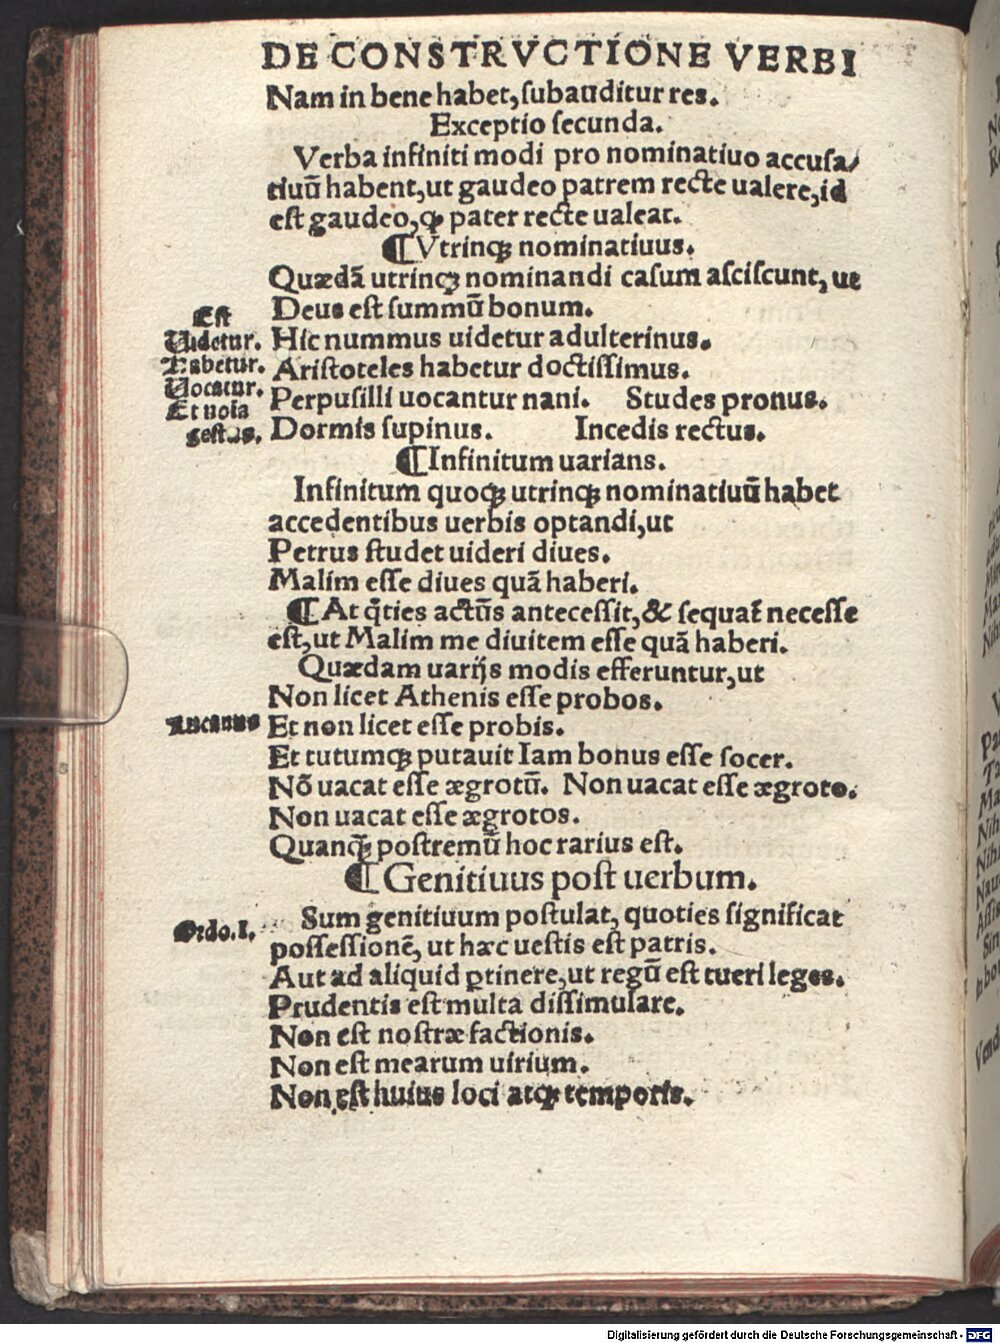 DE CONSTRVCTIONE VERBI
Nam in bene habet, subauditur res.
Exceptio secunda.
Verba infiniti modi pro nominatiuo accusa/
tiuū habent, ut gaudeo patrem recte ualere, id
est gaudeo, ꝙ pater recte ualeat.
¶ Vtrinqꝫ nominatiuus.
Quædā utrinqꝫ nominandi casum asciscunt, ut
Deus est summū bonum.
Est
Uidetur.
Habetur.
Uocatur.
Et noīa
gestus.
Hic nummus uidetur adulterinus.
Aristoteles habetur doctissimus.
Perpusilli uocantur nani. Studes pronus.
Dormis supinus. Incedis rectus.
¶ Infinitum uarians.
Infinitum quoqꝫ utrinqꝫ nominatiuū habet
accedentibus uerbis optandi, ut
Petrus studet uideri diues.
Malim esse diues quā haberi.
¶ At q̄ties actūs antecessit, & sequat̄ necesse
est, ut Malim me diuitem esse quā haberi.
Quædam uarijs modis efferuntur, ut
Non licet Athenis esse probos.
Lucanus
Et non licet esse probis.
Et tutumqꝫ putauit Iam bonus esse socer.
Nō uacat esse ægrotū. Non uacat esse ægroto.
Non uacat esse ægrotos.
Quanqꝫ̄ postremū hoc rarius est.
¶ Genitiuus post uerbum.
Ordo.I.
Sum genitiuum postulat, quoties significat
possessionē, ut hæc uestis est patris.
Aut ad aliquid ꝑtinere, ut regū est tueri leges.
Prudentis est multa dissimulare.
Non est nostræ factionis.
Non est mearum uirium.
Non est huius loci atqꝫ temporis.
Digitalisierung gefördert durch die Deutsche Forschungsgemeinschaft - DFG